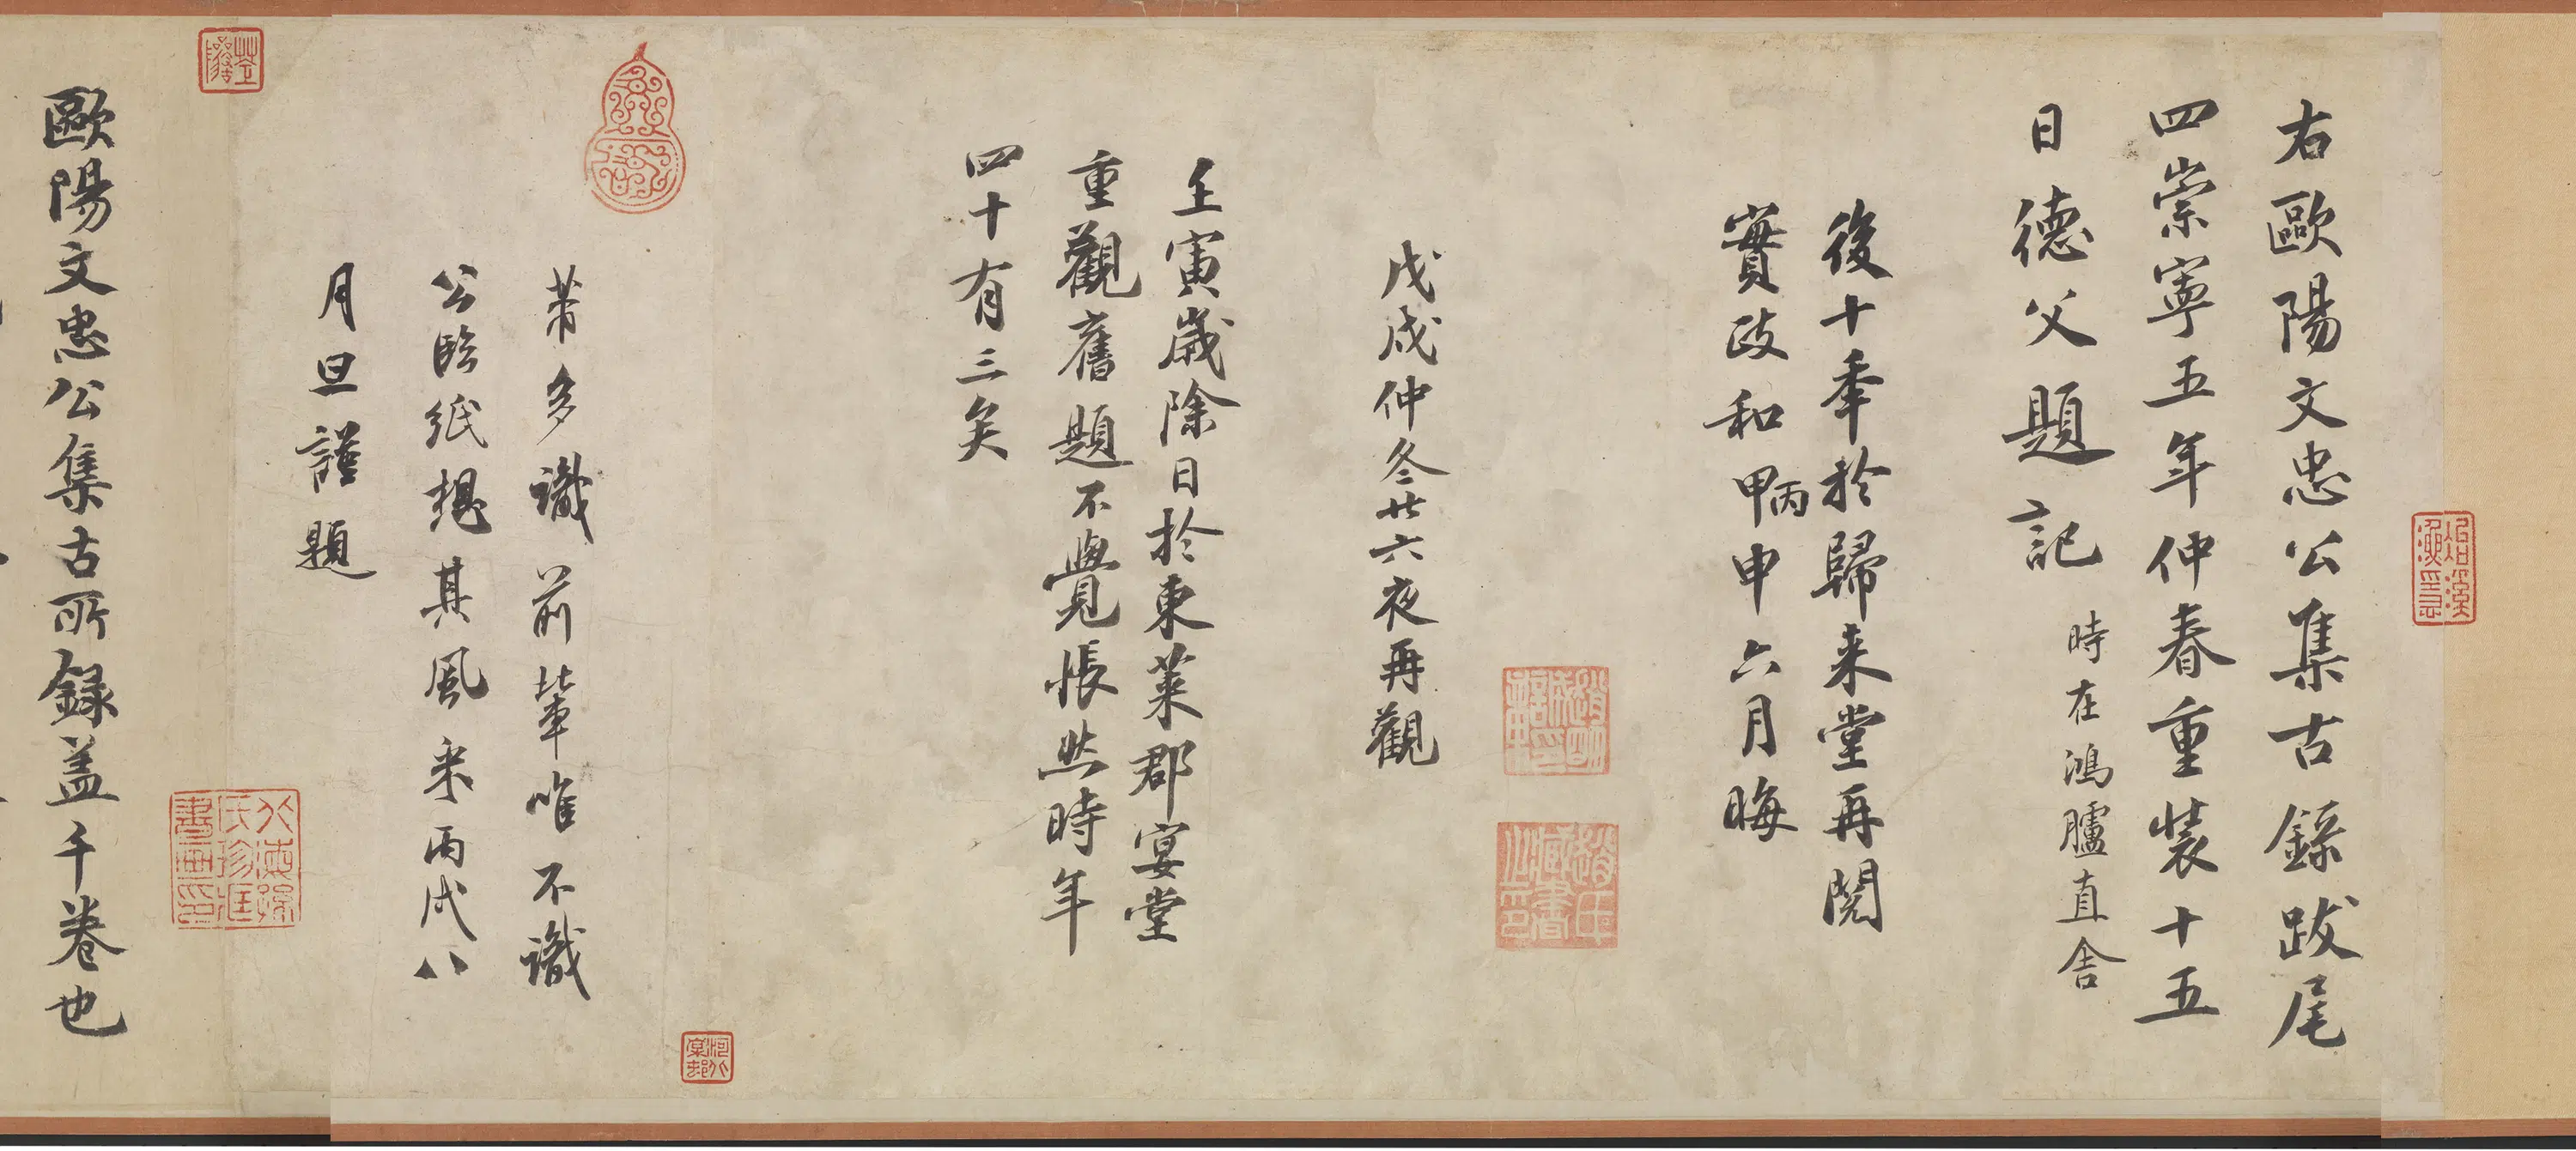 右歐陽文忠公集古録跋尾
四崇寧五年仲春重装十五
日德父題記
時在鴻臚直舍
後十年於歸来堂再閱
實政和甲丙申六月晦
戊戌仲冬廿六夜再觀
壬寅歲除日於東萊郡宴堂
重觀舊題不覺悵然時年
四十有三矣
芾多識前輩唯不識
公臨紙想其風采丙戌八
月旦謹題
歐陽文忠公集古所録盖千卷也